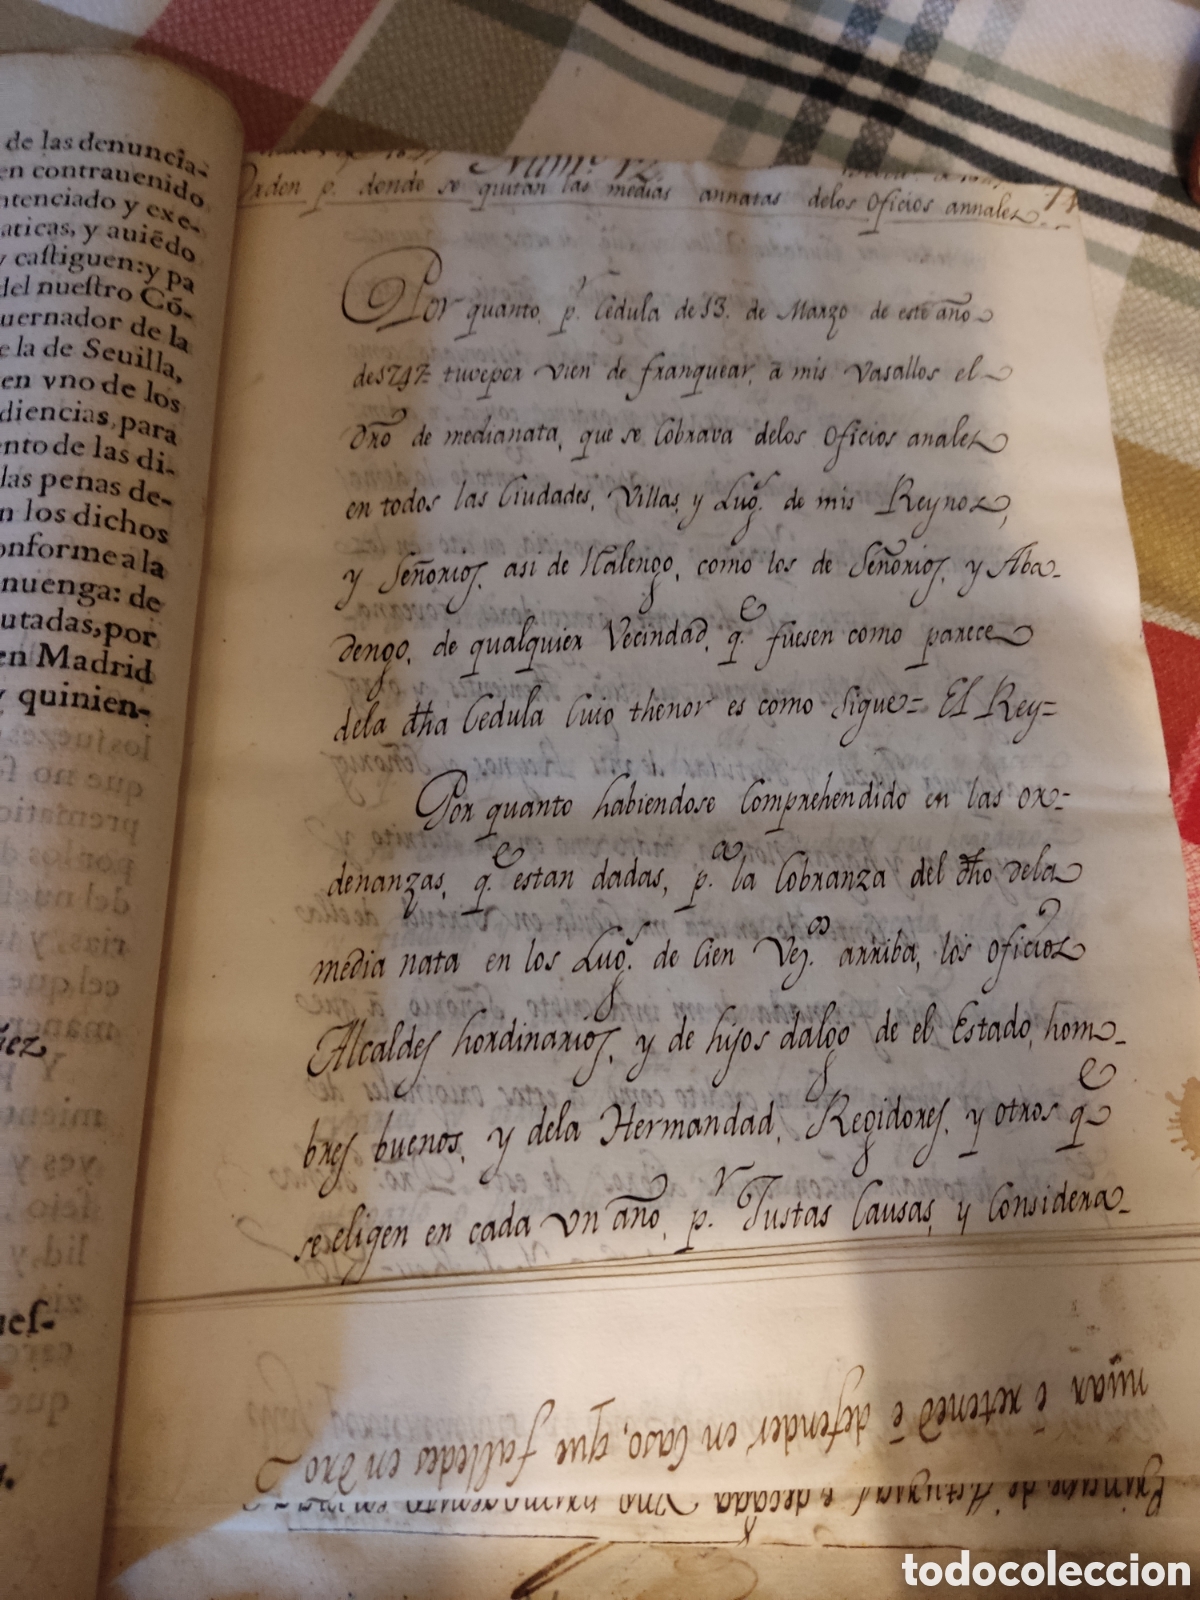 de las denuncia-
en contrauenido
ntenciado y exe-
aticas, y auiẽdo
y castiguen: y pa
del nuestro Cõ-
uernador de la
e la de Seuilla,
en vno de los
diencias, para
nto de las di-
las penas de-
n los dichos
onforme a la
nuenga: de
utadas, por
en Madrid
y quinien-
Num.º 12.
Orden p.ʳ donde se quitan las medias annatas delos Oficios annales
74
Por quanto, p.ʳ Cedula de 13. de Marzo de este año
de 1747 tuve por vien de franquear, à mis vasallos el
dro de medianata, que se Cobrava delos Oficios anales
en todos las Ciudades, Villas, y Lug.ˢ de mis Reynos,
y Señorios, asi de Ralengo, como los de Señorios, y Aba-
dengo, de qualquier Vecindad, q.ᵉ fuesen como parece
dela dha Cedula Cuio thenor es como Sigue= El Rey=
Por quanto habiendose Comprehendido en las or=
denanzas, q.ᵉ estan dadas, p.ᵃ la Cobranza del dho dela
media nata en los Lug.ˢ de Cien Vez.ᵒˢ arriba, los oficios
Alcaldes hordinarios, y de hijos dalgo de el Estado, hom-
bres buenos, y dela Hermandad, Regidores, y otros q.ᵉ
se eligen en cada un año, p.ʳ Justas Causas, y Considera-
nuar è retened è defender en Caso, que falledes en dro
todocoleccion